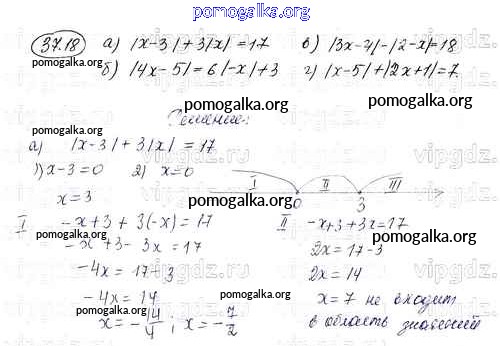 pomogalka.org
37.18 а) |x-3|+3|x|=17 в) |3x-4|-|2-x|=18
б) |4x-5|=6|-x|+3 г) |x-5|+|2x+1|=7.
pomogalka.org pomogalka.org pomogalka.org
Решение:
pomogalka.org
а) |x-3|+3|x|=17
1) x-3=0 2) x=0 I II III
pomogalka.org pomogalka.org
x=3 0 3
pomogalka.org
I -x+3+3(-x)=17 II -x+3+3x=17
pomogalka.org pomogalka.org
-x+3-3x=17 2x=17-3
-4x=17-3 2x=14
pomogalka.org pomogalka.org
-4x=14 x=7 не входит
x=-14/4; x=-7/2 в область значений
pomogalka.org pomogalka.org